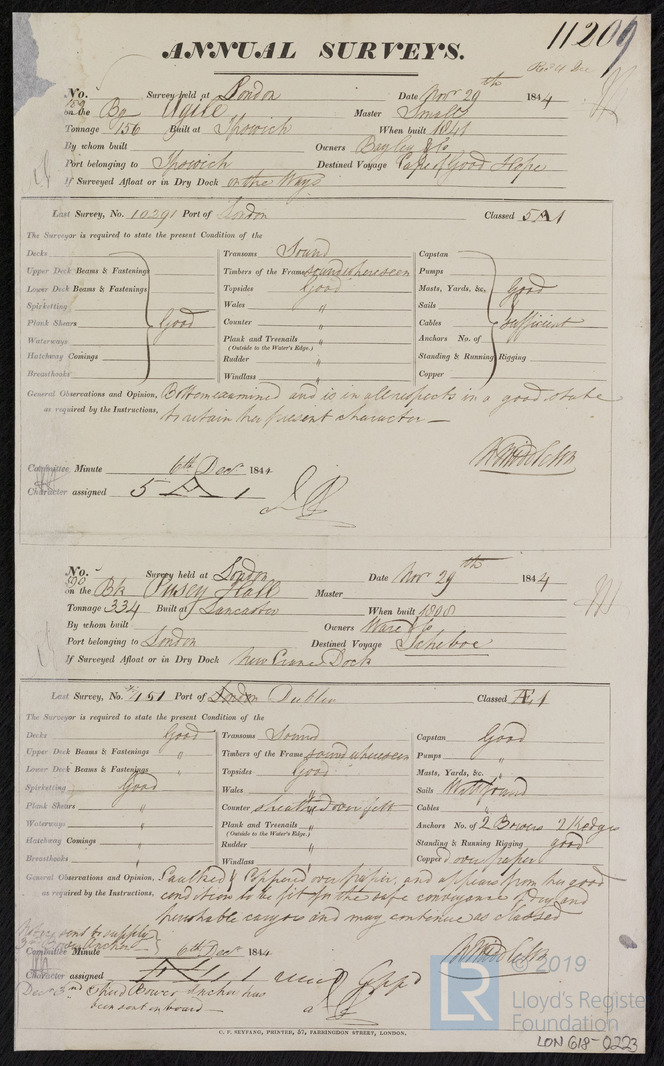 11209
ANNUAL SURVEYS.
No. 189 Survey held at London Date Novr 29th 1844
on the Bg Agile Master Smalls
Tonnage 156 Built at Ipswich When built 1841
By whom built Owners Bayley & Co
Port belonging to Ipswich Destined Voyage Cape of Good Hope
If Surveyed Afloat or in Dry Dock on the Ways
Last Survey, No. 10291 Port of London Classed 5 A 1
The Surveyor is required to state the present Condition of the
Decks Transoms Sound Capstan
Upper Deck Beams & Fastenings Timbers of the Frame sound where seen Pumps
Lower Deck Beams & Fastenings Topsides Good Masts, Yards, &c. Good
Spirketting Wales " Sails
Plank Shears Good Counter " Cables sufficient
Waterways Plank and Treenails " Anchors No. of
(Outside to the Water's Edge.)
Hatchway Comings Rudder " Standing & Running Rigging
Breasthooks Windlass " Copper
General Observations and Opinion, Bottom examined and is in all respects in a good state
as required by the Instructions, to retain her present character
Committee Minute 6th Decr 1844
Character assigned 5 A 1
No. 590 Survey held at London Date Novr 29th 1844
on the Bk Pusey Hall Master
Tonnage 334 Built at Lancaster When built 1808
By whom built Owners Ware & Co
Port belonging to London Destined Voyage Ichaboe
If Surveyed Afloat or in Dry Dock New Crane Dock
Last Survey, No. 451 Port of London Dublin Classed Æ 1
The Surveyor is required to state the present Condition of the
Decks Good Transoms Sound Capstan Good
Upper Deck Beams & Fastenings " Timbers of the Frame sound where seen Pumps "
Lower Deck Beams & Fastenings " Topsides Good Masts, Yards, &c. "
Spirketting Good Wales " Sails Well found
Plank Shears " Counter sheathed over felt Cables "
Waterways " Plank and Treenails " Anchors No. of 2 Bowers 2 Kedges
(Outside to the Water's Edge.)
Hatchway Comings " Rudder " Standing & Running Rigging good
Breasthooks " Windlass " Copper over paper
General Observations and Opinion, Caulked & Coppered over paper, and appears from her good
as required by the Instructions, condition to be fit for the safe conveyance of dry and
perishable cargoes and may continue as classed
Committee Minute 6th Decr 1844
Character assigned Æ 1
Decr 3rd Bower Anchor has
been sent on board
© 2019
LR
Lloyd's Register
Foundation
C. F. SEYFANG, PRINTER, 57, FARRINGDON STREET, LONDON.
LON 618-0223